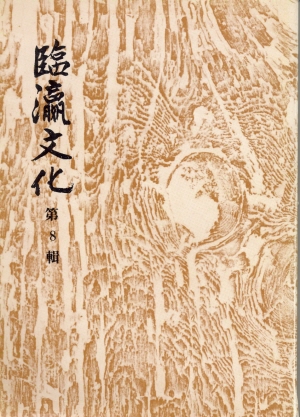 臨瀛文化
第8輯